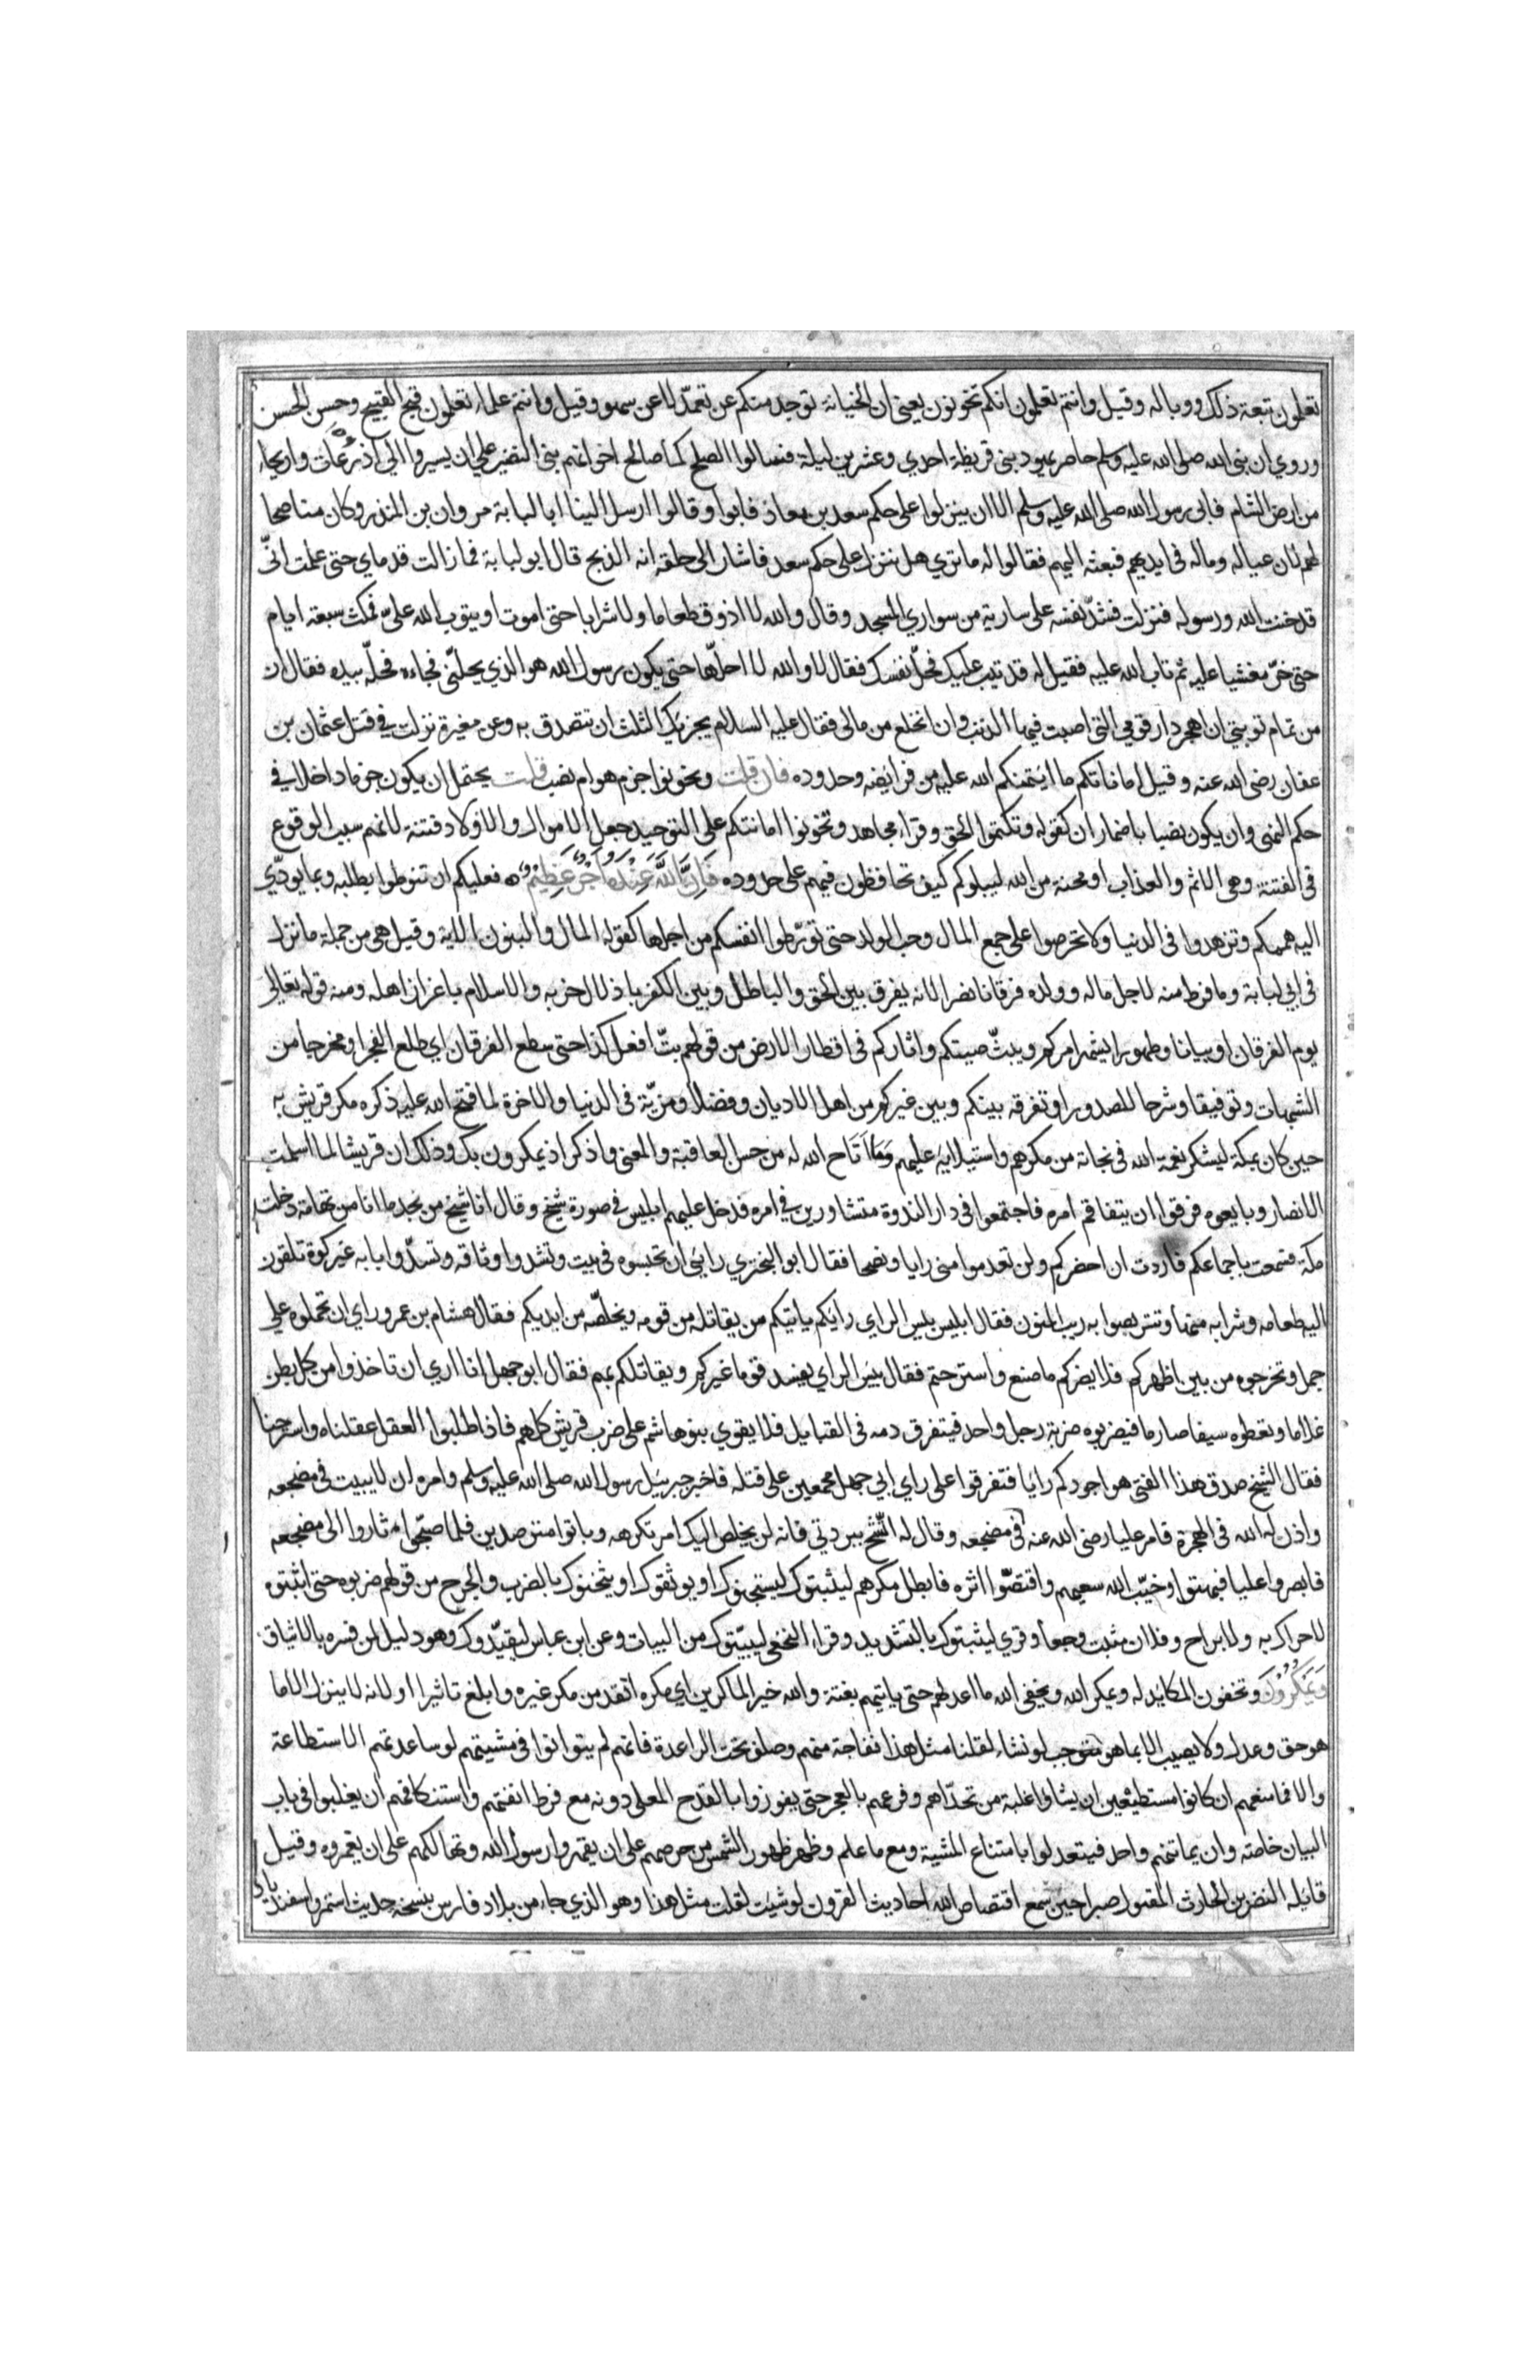 تعلمون تبعة ذلك ووباله وقيل وانتم تعلمون انكم تخونون يعني ان الخيانة توجد منكم عن تعمّد لا عن سهو وقيل وانتم علماء تعلمون قبح القبيح وحسن الحسن
وروي ان نبي الله صلى الله عليه وسلم حاصر يهود بني قريظة احدي وعشرين ليلة فسالوا الصلح كما صالح اخوانهم بني النضير علي ان يسيروا الي اذرعات واريحاء
من ارض الشام فابى رسول الله صلى الله عليه وسلم الا ان ينزلوا على حكم سعد بن معاذ فابوا وقالوا ارسل الينا ابا لبابة مروان بن المنذر وكان مناصحا
لهم لان عياله وماله في ايديهم فبعثه اليهم فقالوا له ما تري هل ننزل على حكم سعد فاشار الى حلقه انه الذبح قال ابو لبابة فما زالت قدماي حتى علمت انّي
قد خنت الله ورسوله فنزلت فشدّ نفسه على سارية من سواري المسجد وقال والله لا اذوق طعاما ولا شرابا حتى اموت او يتوب الله عليّ فمكث سبعة ايام
حتى خرّ مغشيا عليه ثم تاب الله عليه فقيل له قد تيب عليك فحلّ نفسك فقال لا والله لا احلّها حتى يكون رسول الله هو الذي يحلّني فجاءه فحلّه بيده فقال ان
من تمام توبتي ان اهجر دار قومي التي اصبت فيها الذنب وان انخلع من مالي فقال عليه السلام يجزيك الثلث ان تتصدق به وعن مغيرة نزلت في قتل عثمان بن
عفان رضي الله عنه وقيل اماناتكم ما ايتمنكم الله عليه من فرايضه وحدوده فان قلت وتخونوا جزم هو ام نصب قلت يحتمل ان يكون جزما داخلا في
حكم النهي وان يكون نصبا باضمار ان كقوله وتكتموا الحق وقراء مجاهد وتخونوا امانتكم على التوحيد جعل الاموال والاولاد فتنة لانهم سبب الوقوع
في الفتنة وهي الاثم والعذاب او محنة من الله ليبلوكم كيف تحافظون فيهم على حدوده فَانَّ اللَّهَ عِنْدَهُ اَجْرٌ عَظِيمٌ فعليكم ان تنوطوا بطلبه وبما يودّي
اليه هممكم وتزهدوا في الدنيا ولا تحرصوا على جمع المال وحب الولد حتى تورّطوا انفسكم من اجلها كقوله المال والبنون الاية وقيل هي من جملة ما نزل
في ابي لبابة وما فرط منه لاجل ماله وولده فرقانا نصرا لانه يفرق بين الحق والباطل وبين الكفر باذلال حزبه والاسلام باعزاز اهله ومنه قوله تعالى
يوم الفرقان او بيانا وظهورا يشهر امركم ويبثّ صيتكم واثاركم في اقطار الارض من قولهم بتّ افعل كذا حتى سطع الفرقان اي طلع الفجر او مخرجا من
الشبهات وتوفيقا وشرحا للصدور او تفرقة بينكم وبين غيركم من اهل الاديان وفضلا ومزيّة في الدنيا والاخرة لما فتح الله عليه ذكره مكر قريش به
حين كان بمكة ليشكر نعمة الله في نجاته من مكرهم واستيلايه عليهم وما اتاح الله له من حسن العاقبة والمعنى واذكر اذ يمكرون بك وذلك ان قريشا لما اسلمت
الانصار وبايعوه فرقوا ان يتفاقم امره فاجتمعوا في دار الندوة متشاورين في امره فدخل عليهم ابليس في صورة شيخ وقال انا شيخ من نجد ما انا من تهامة دخلت
مكة فسمعت باجماعكم فاردت ان احضركم ولن تعدموا مني رايا ونصحا فقال ابو البختري رايي ان تحبسوه في بيت وتشدوا وثاقه وتسدّوا بابه غير كوة تلقون
اليه طعامه وشرابه منها وتتربصوا به ريب المنون فقال ابليس بيس الراي رايكم ياتيكم من يقاتله من قومه ويخلّصه من ايديكم فقال هشام بن عمرو رايي ان تحملوه على
جمل وتخرجوه من بين اظهركم فلا يضركم ما صنع واسترحتم فقال بيس الراي يفسد قوما غيركم ويقاتلكم بهم فقال ابو جهل انا اري ان تاخذوا من كل بطن
غلاما وتعطوه سيفا صارما فيضربوه ضربة رجل واحد فيتفرق دمه في القبايل فلا يقوي بنو هاشم على ضرب قريش كلهم فاذا طلبوا العقل عقلناه واسترحنا
فقال الشيخ صدق هذا الفتى هو اجودكم رايا فتفرقوا على راي ابي جهل مجمعين على قتله فاخبر جبريل رسول الله صلى الله عليه وسلم وامره ان لا يبيت في مضجعه
واذن له الله في الهجرة فامر عليا رضي الله عنه في مضجعه وقال له اتّشح ببردتي فانه لن يخلص اليك امر تكرهه وباتوا مترصدين فلما اصبحوا ثاروا الى مضجعه
فابصروا عليا فبهتوا وخيّب الله سعيهم واقتصّوا اثره فابطل مكرهم ليثبتوك ليسجنوك او يوثقوك او يثخنوك بالضرب والجرح من قولهم ضربوه حتى اثبتوه
لا حراك به ولا براح وفلان مثبت وجعا وقري ليثبتوك بالتشديد وقراء النخعي ليبيّتوك من البيات وعن ابن عباس ليقيّدوك وهو دليل لمن فسره بالايثاق
وَيَمْكُرُوُنَ ويخفون المكايد له ويمكر الله ويخفى الله ما اعد لهم حتى ياتيهم بغتة والله خير الماكرين اي مكره انفذ من مكر غيره وابلغ تاثيرا او لانه لا ينزل الا ما
هو حق وعدل ولا يصيب الا بما هو مستوجب لو نشاء لقلنا مثل هذا نفاجة منهم وصلف تحت الراعدة فانهم لم يتوانوا في مشيتهم لو ساعدتهم الاستطاعة
والا فما منعهم ان كانوا مستطيعين ان يشاوا غلبة من تحدّاهم وقرعهم بالعجز حتى يفوزوا بالقدح المعلى دونه مع فرط انفتهم واستنكافهم ان يغلبوا في باب
البيان خاصة وان يماتنهم واحد فيتعللوا بامتناع المشية ومع ما علم وظهر ظهور الشمس من حرصهم على ان يقهروا رسول الله وتهالكهم على ان يغمروه وقيل
قايله النضر بن الحارث المقتول صبرا حين سمع اقتصاص الله احاديث القرون لو شيت لقلت مثل هذا وهو الذي جاء من بلاد فارس بنسخة حديث رستم واسفنديار